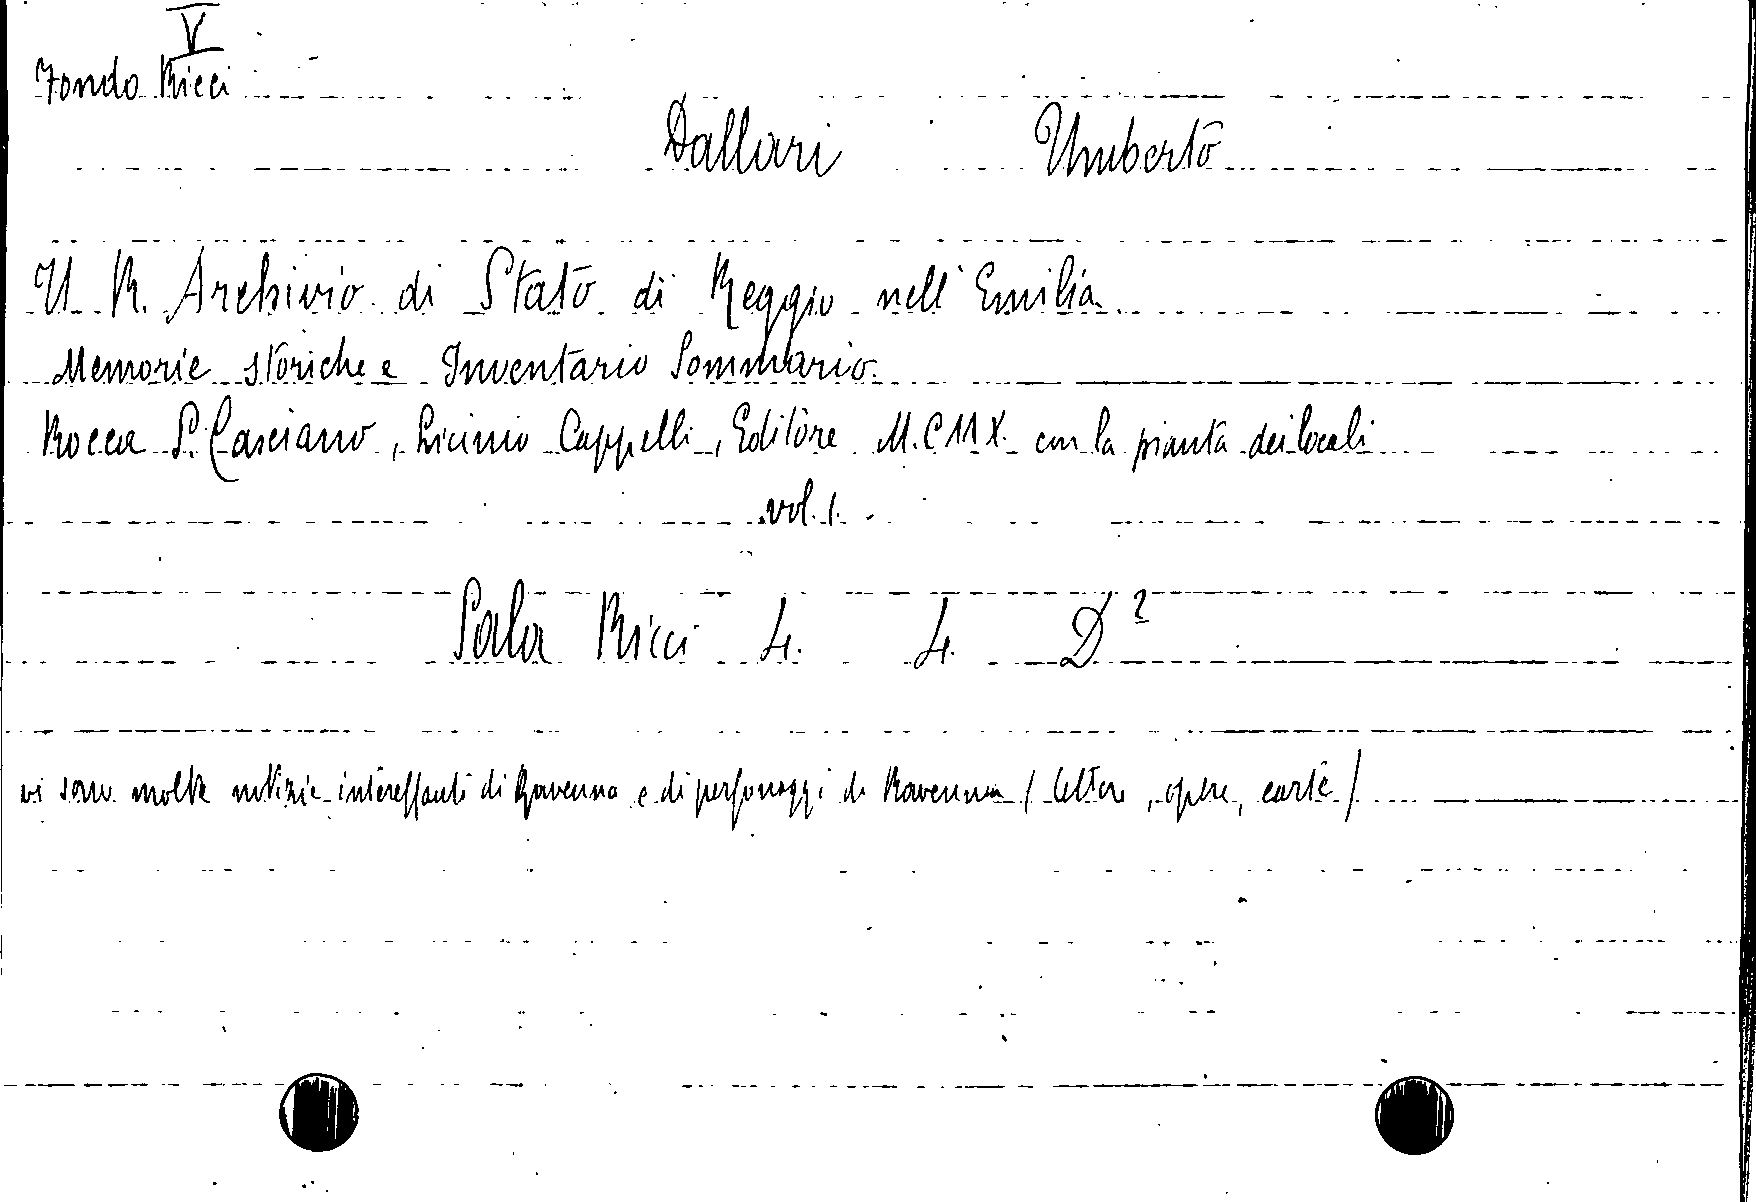 V
Fondo Ricci
Dallari Umberto
Il R. Archivio di Stato di Reggio nell'Emilia.
Memorie storiche e Inventario Sommario.
Rocca S. Casciano, Licinio Cappelli, Editore M.CMX. con la pianta dei locali
vol. 1.
Sala Ricci 4. 4. D²
vi sono molte notizie interessanti di Ravenna e di personaggi di Ravenna (lettere, opere, carte)